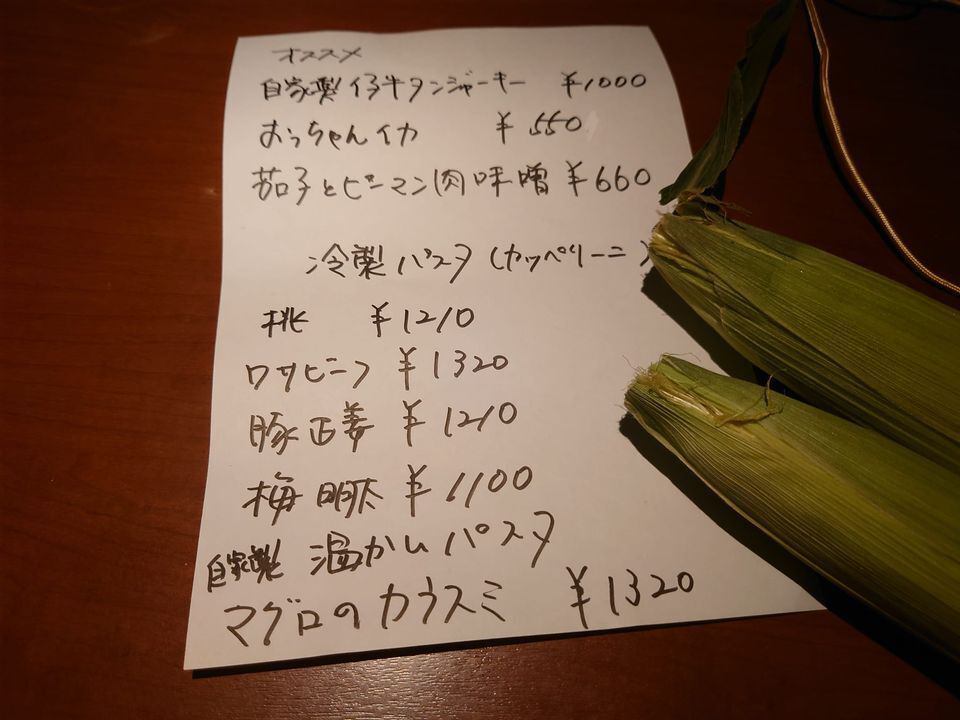 オススメ
自家製 仔牛タンジャーキー ¥1000
おっちゃんイカ ¥550
茄子とピーマン肉味噌 ¥660
冷製パスタ(カッペリーニ)
桃 ¥1210
ワサビーフ ¥1320
豚正姜 ¥1210
梅明太 ¥1100
自家製 温かいパスタ
マグロのカラスミ ¥1320